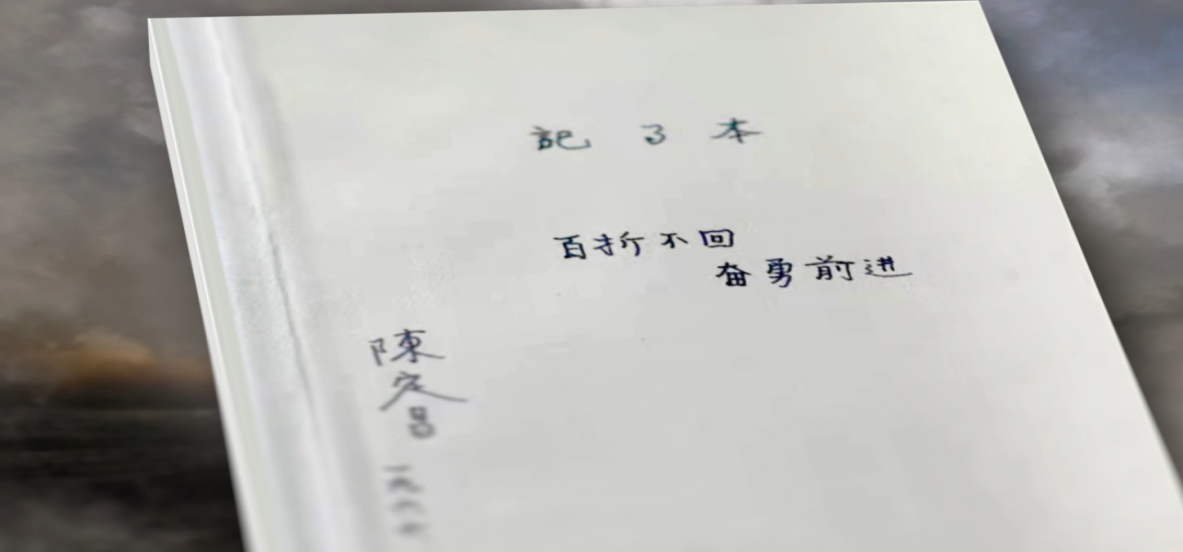 記了本
百折不回
奋勇前进
陳定昌
一九六七